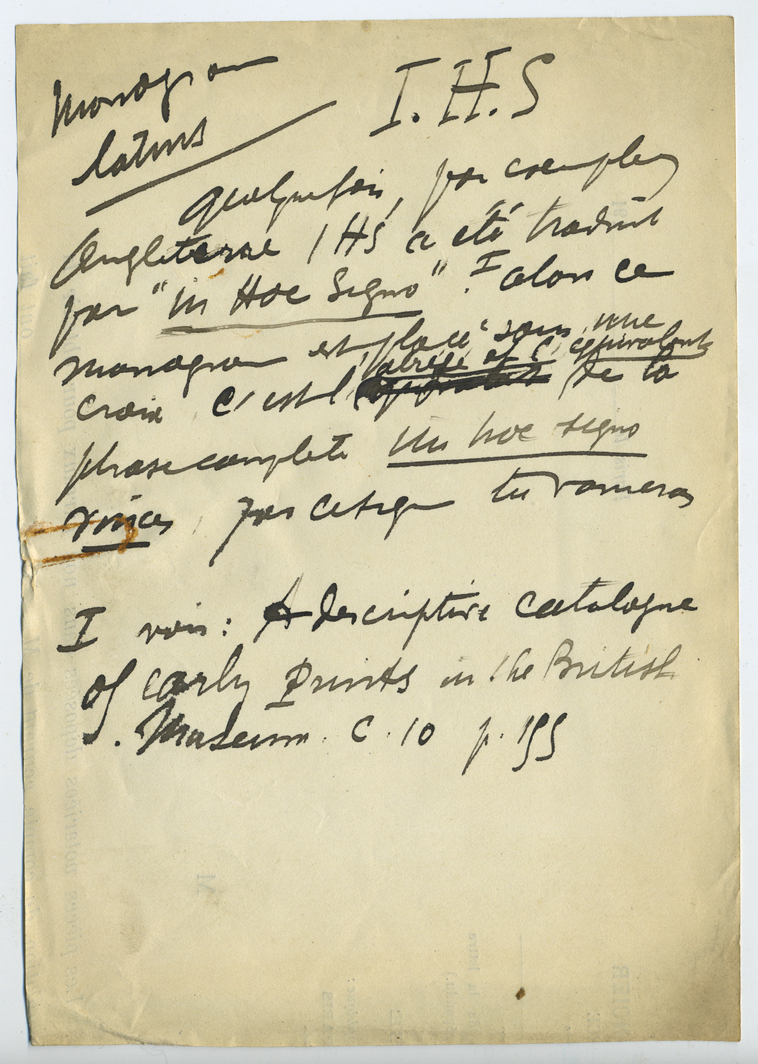 Monogram
latins
I.H.S
Quelquefois, par exemple en
Angleterre IHS a été traduit
par "in Hoc Signo". I alors ce
monogram est placé sous une
abrégé et l'équivalent
croix c'est l' de la
phrase complete in hoc signo
vinces, par ce signe tu vaincras
I voir: A descriptive catalogue
of early Prints in the British
Museum. C. 10 p. 155